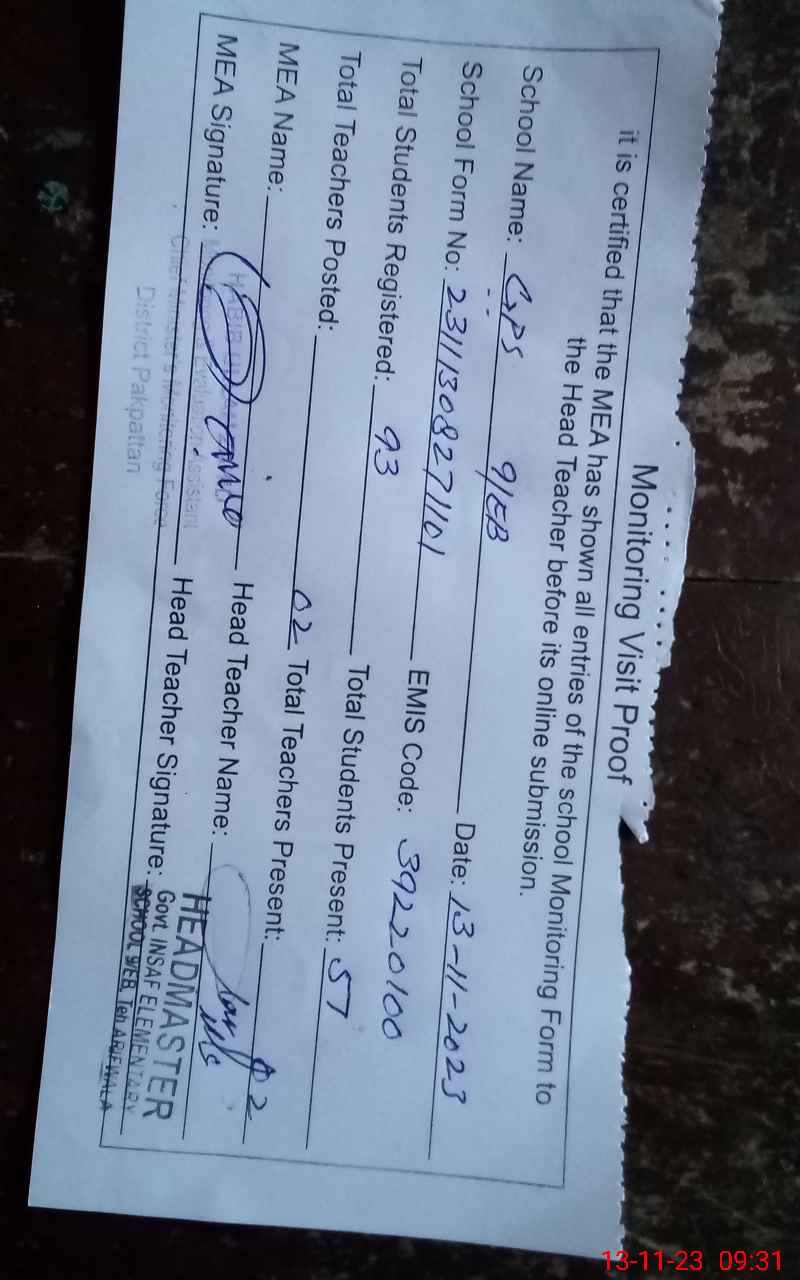 Monitoring Visit Proof
it is certified that the MEA has shown all entries of the school Monitoring Form to
the Head Teacher before its online submission.
School Name: GPS 9/EB Date: 13-11-2023
School Form No: 23111308271101 EMIS Code: 39220100
Total Students Registered: 93 Total Students Present: 57
Total Teachers Posted: 02 Total Teachers Present: 02
MEA Name: Head Teacher Name:
MEA Signature: Head Teacher Signature:
Evaluation Assistant
Chief Minister's Monitoring Force
District Pakpattan
HEADMASTER
Govt. INSAF ELEMENTARY
SCHOOL 9/EB Teh ARIFWALA
13-11-23 09:31